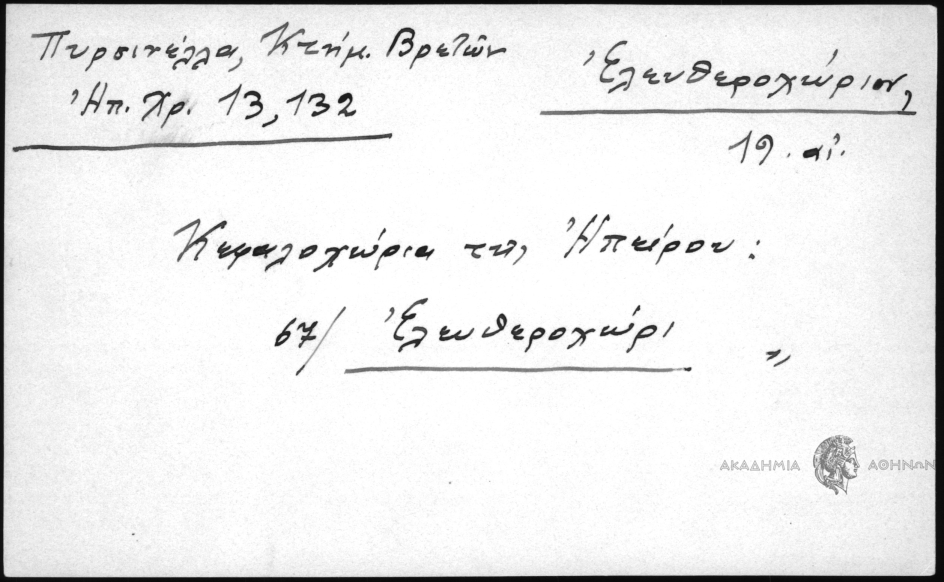 Πυρσινέλλα, Κτημ. Βρετῶν
Ἠπ. Χρ. 13, 132
Ἐλευθεροχώριον,
19. αἰ.
Κεφαλοχώρια τῆς Ἠπείρου :
67/ Ἐλευθεροχώρι "
ΑΚΑΔΗΜΙΑ ΑΘΗΝΩΝ